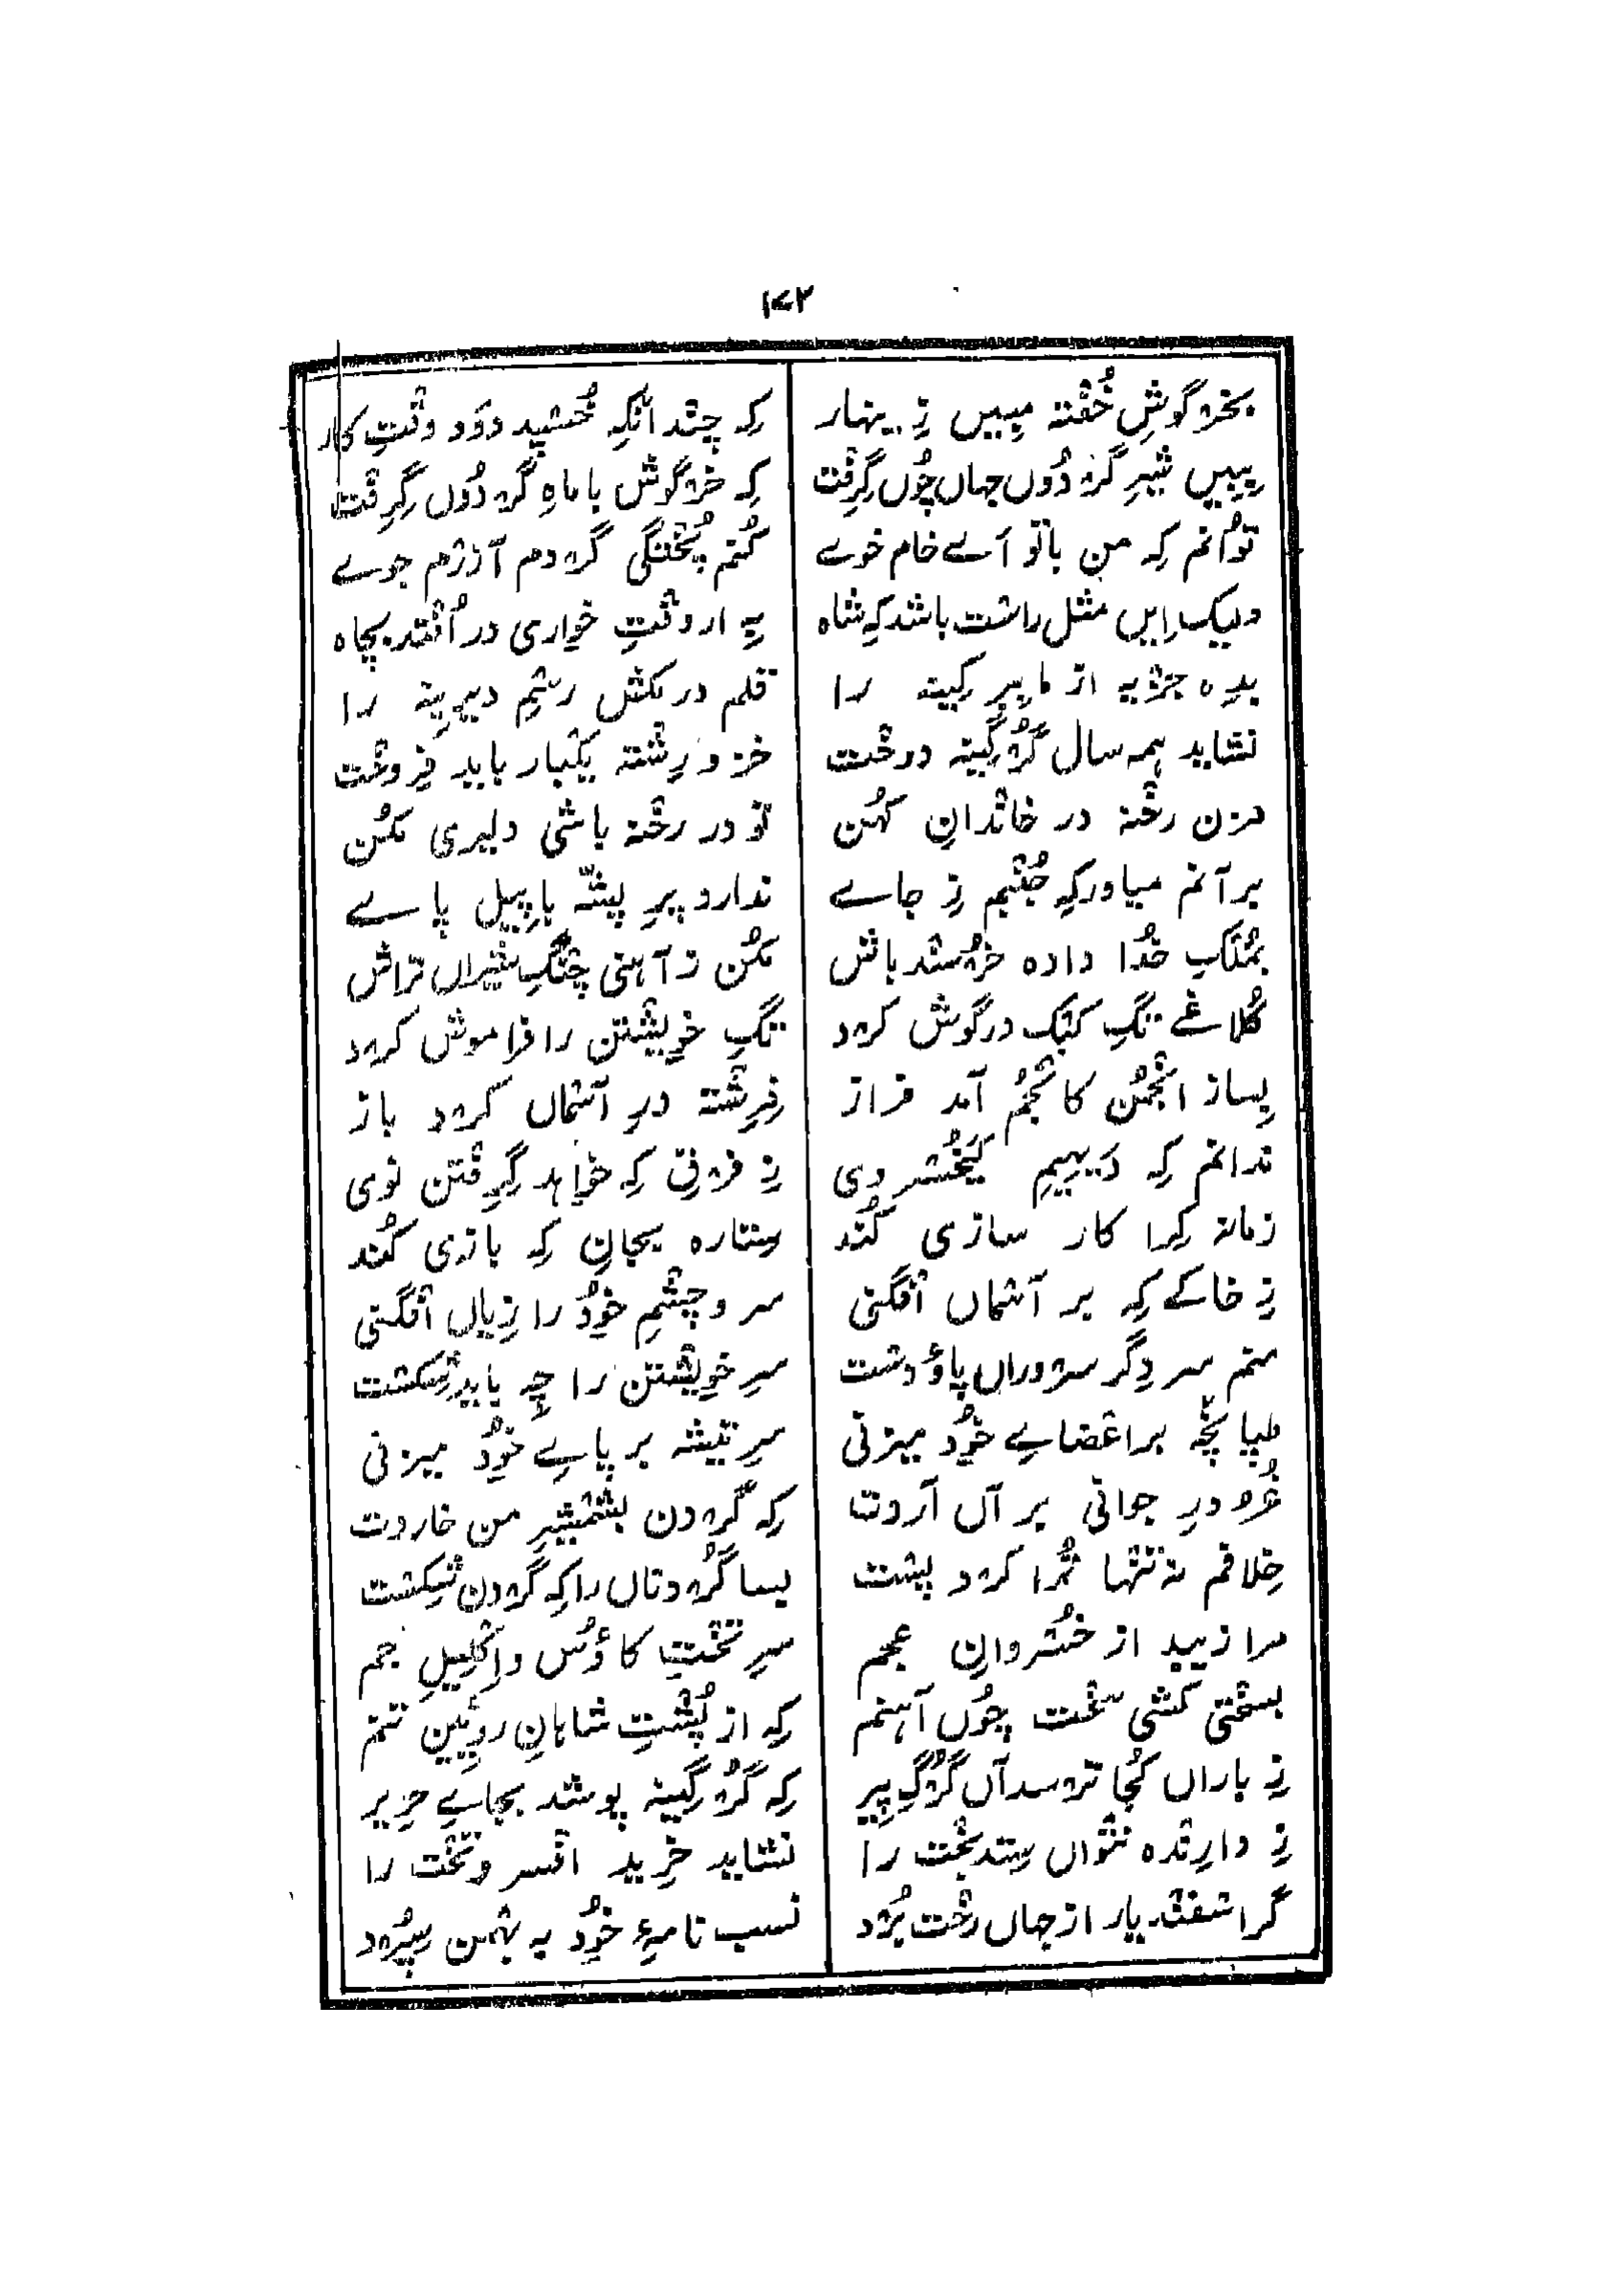 ۱۷۲
بخرگوشِ خُفتہ مبیں زِینہار کہ چنداںکہ خُسپد دوَد وقتِ کار
ببیں شیرِ گردُوں جہاں چُوں گِرِفت کہ خرگوش باماہِ گردُوں گِرِفت
توُانم کہ من باتو اَے خام خوے کُنم پُختگی گردم آزرم جوے
ولیک ایں مثل راست باشد کہ شاہ بہ ار وقتِ خواری در اُفتد بچاہ
بدہ جزیہ از ما ببر کینہ را قلم درمکش رسمِ دیرینہ را
نشاید ہمہ سال گرُگینہ دوخت خز و رِشتہ یکبار باید فروخت
مزن رخنہ در خاندانِ کہُن تو در رخنہ باشی دلیری مکُن
برآنم میاور کہ جُنبم زِ جاے ندارد پرِ پشّہ باپیل پاے
بمُلکِ خُدا دادہ خرُسند باش مکُن ز آہنی چنگِ شیراں تراش
کُلاغے تگِ کبک درگوش کرد تگِ خویشتن را فراموش کرد
بساز انجمُن کانجمُ آمد فراز فِرِشتہ درِ آسماں کرد باز
ندانم کہ دیہیمِ کیخُسروی زِ فرقِ کہ خواہد گِرِفتن نوی
زمانہ کِرا کار سازی کُند ستارہ بجانِ کہ بازی کُند
زِ خاکے کہ بر آسماں افگنی سر و چشمِ خوُد را زِیاں افگنی
منم سر دِگر سروراں پاؤ دست سرِ خویشتن را چہ باید شِکست
طپانچہ براعضاے خوُد میزنی سرِ تیشہ بر پاے خوُد میزنی
غُرورِ جوانی بر آں آردت کہ گردن بشمشیرِ من خاردت
خِلافم نہ تنہا تُرا کرد پست بسا گرُدناں را کہ گردن شِکست
مرا زیبد از خُسروانِ عجم سرِ تختِ کاؤُس و اِکلیلِ جم
بسختی کشی سخت چوُں آہنم کہ از پُشتِ شاہانِ روئیں تنم
زِ باراں کُجا ترسد آں گرُگِ پِیر کہ گرُگینہ پوشد بجاے حرِیر
زِ دارِندہ نتواں ستد بخت را نشاید خرِید افسر و تخت را
گر اسفندیار از جہاں رخت بُرد نسب نامہٴ خوُد بہ بہمن سپُرد